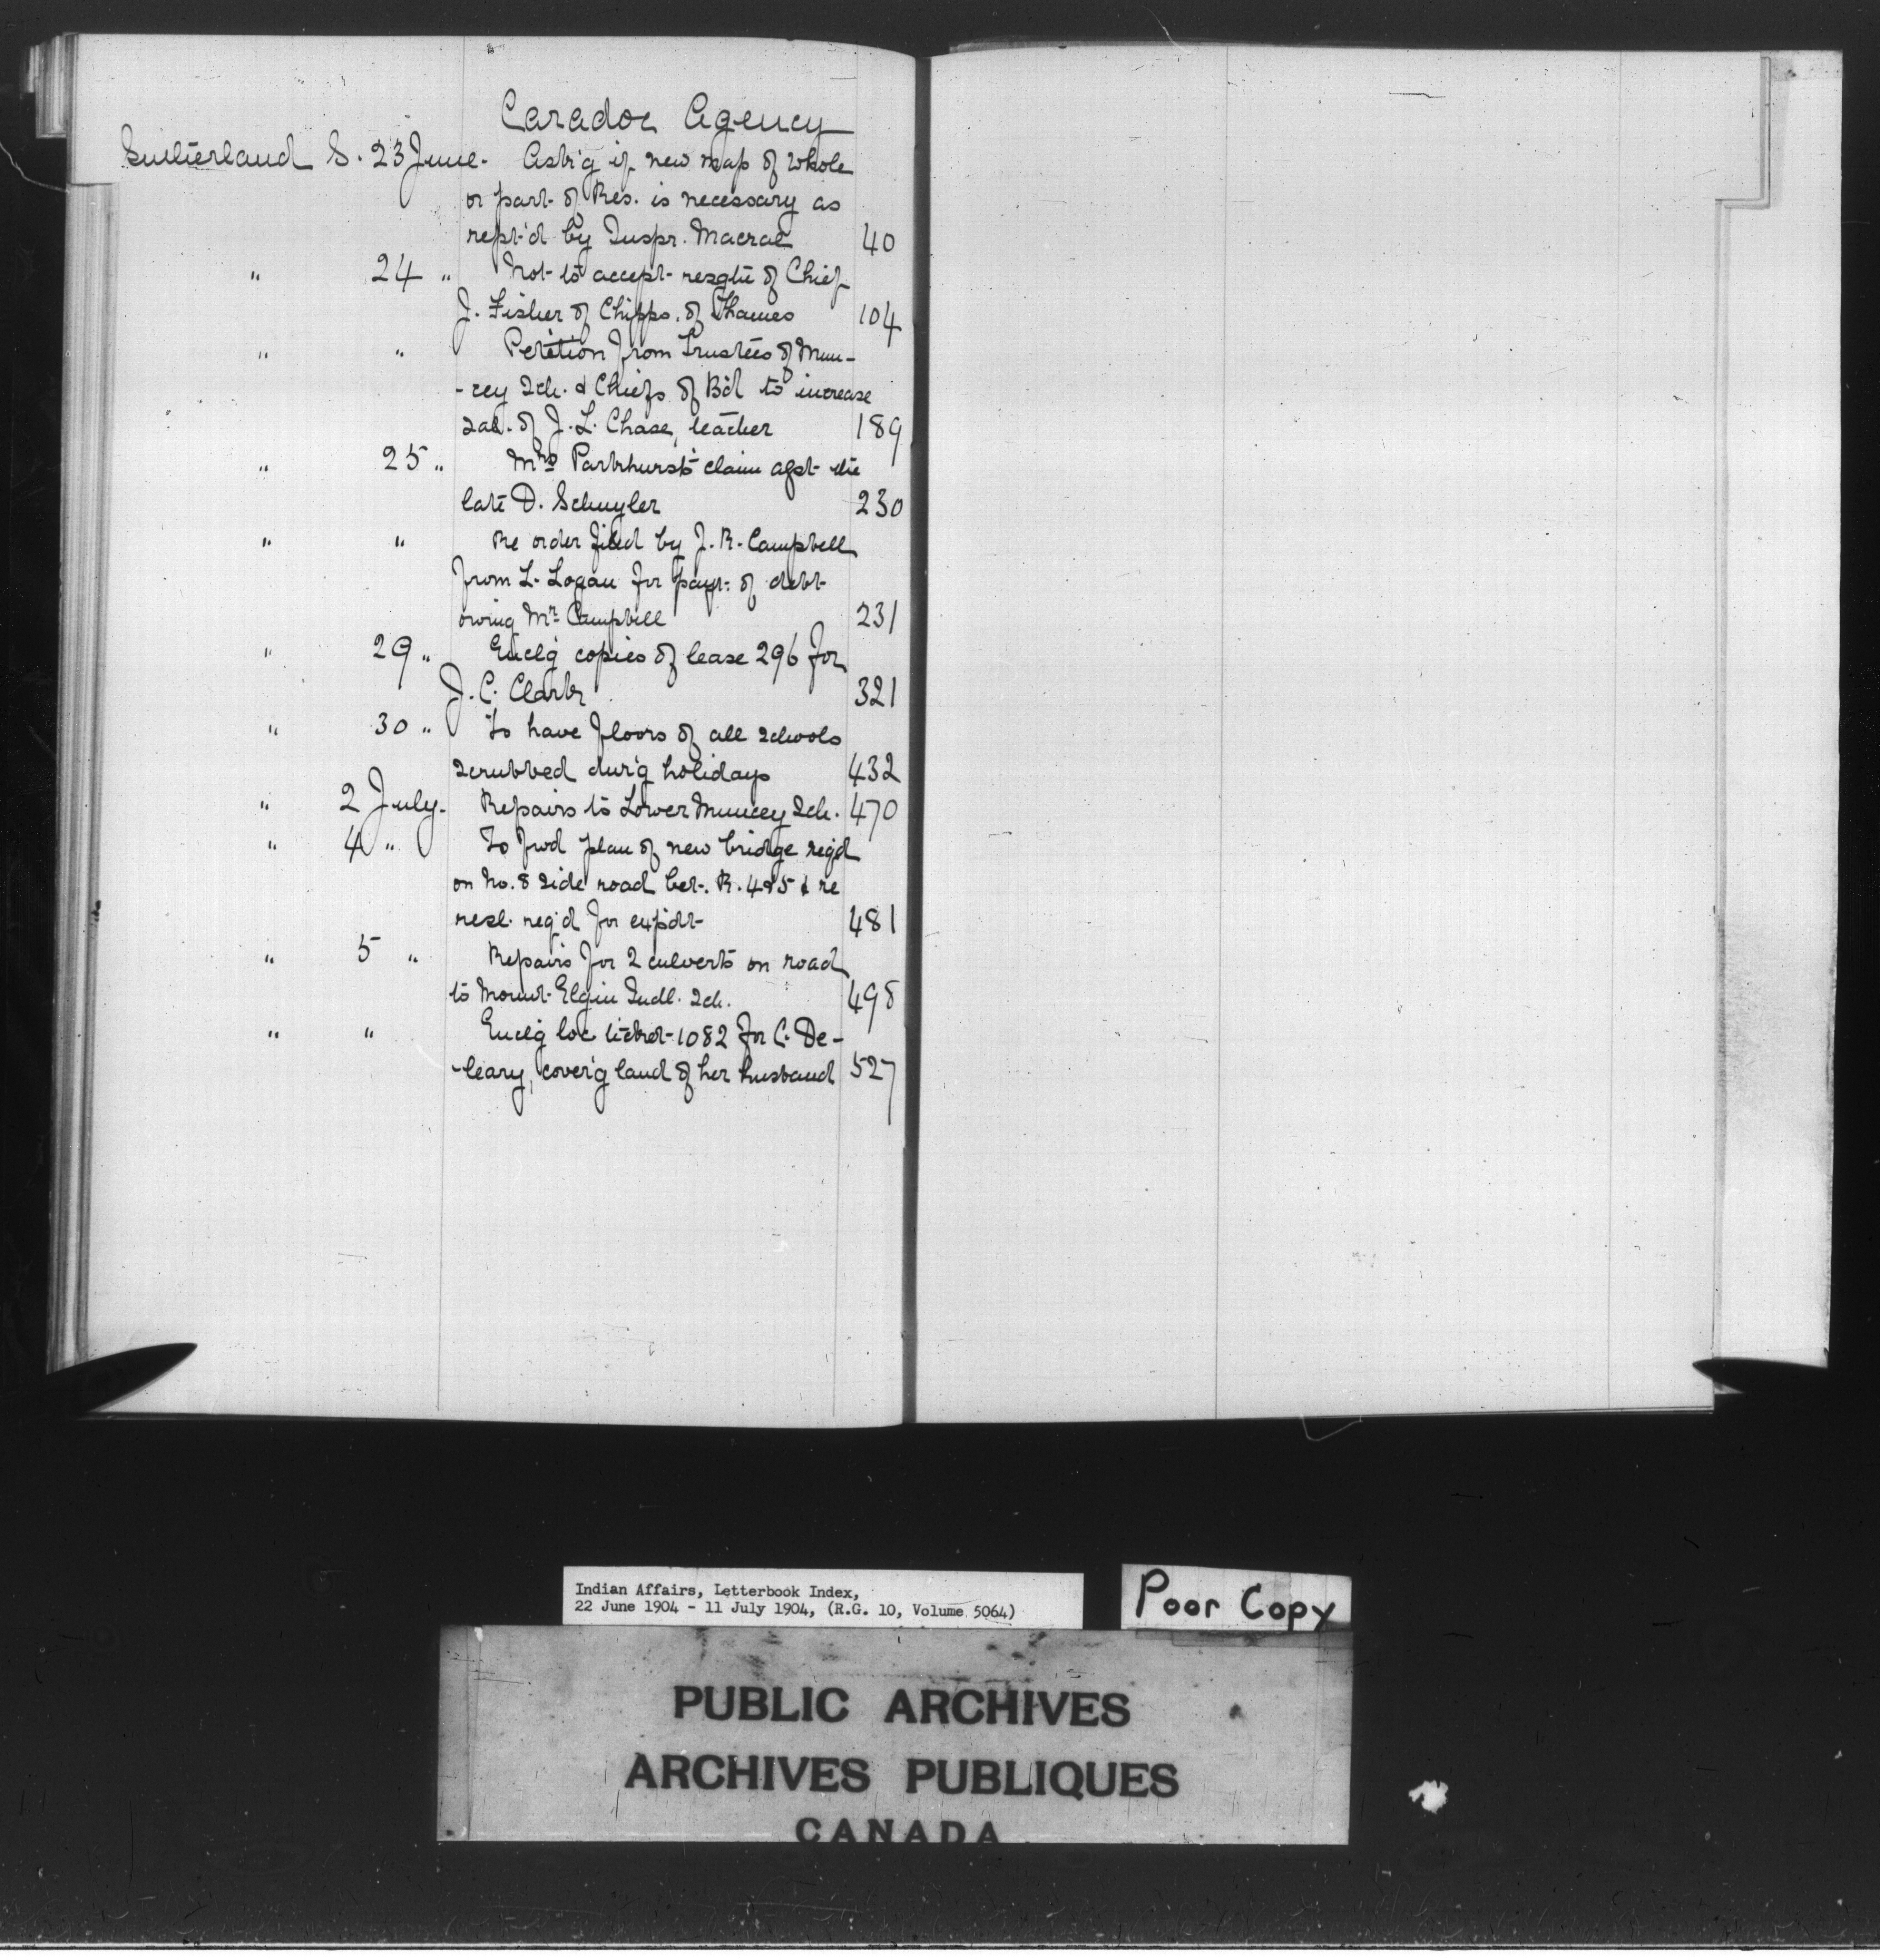 Caradoc Agency
Sutherland S. 23 June. Ask'g if new map of whole
or part of Res. is necessary as
rept'd by Inspr. Macrae 40
" 24 " Not to accept resgtn of Chief
J. Fisher of Chipps. of Thames 104
" " Petition from Trustees of Mun-
-cey Sch. & Chiefs of B'd to increase
sal. of J. L. Chase, teacher 189
" 25 " Mrs Parkhurst's claim agst the
late D. Schuyler 230
" " Re order filed by J. R. Campbell
from L. Logan for payt. of debt
owing Mr. Campbell 231
" 29 " Encl'g copies of lease 296 for
J. C. Clark 321
" 30 " To have floors of all schools
scrubbed dur'g holidays 432
" 2 July. Repairs to Lower Muncey Sch. 470
" 4 " To fwd plan of new bridge req'd
on No. 8 side road bet. R. 4&5 & re
resl. req'd for expdt 481
" 5 " Repairs for 2 culverts on road
to Mount Elgin Indl. Sch. 498
" " Encl'g loc ticket 1082 for C. De-
-leary, cover'g land of her husband 527
Indian Affairs, Letterbook Index,
22 June 1904 - 11 July 1904, (R.G. 10, Volume 5064)
Poor Copy
PUBLIC ARCHIVES
ARCHIVES PUBLIQUES
CANADA